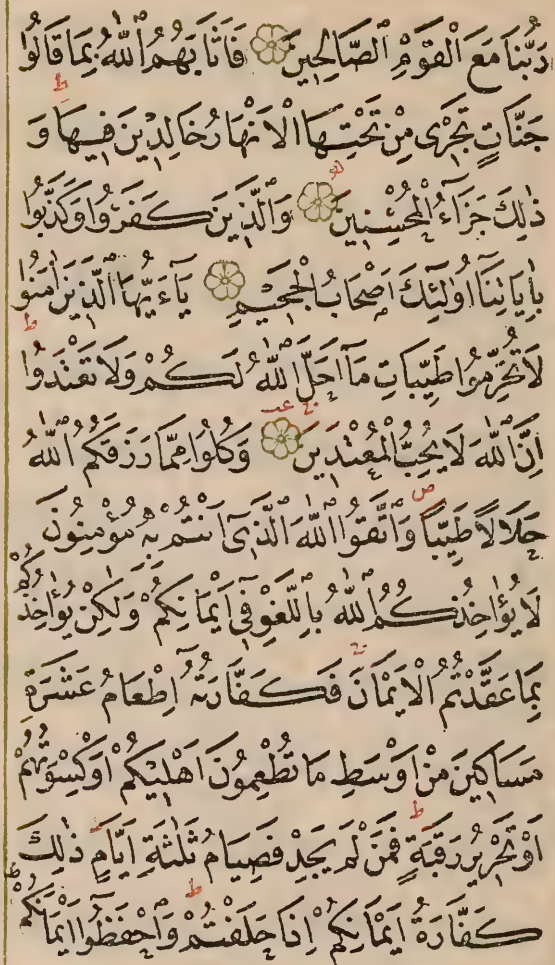 رَبُّنَا مَعَ الْقَوْمِ الصَّالِحِينَ فَاَثَابَهُمُ اللّٰهُ بِمَا قَالُوا
جَنَّاتٍ تَجْرٖى مِنْ تَحْتِهَا الْاَنْهَارُ خَالِدٖينَ فٖيهَا وَ
ذٰلِكَ جَزَٓاءُ الْمُحْسِنٖينَ وَالَّذٖينَ كَفَرُوا وَكَذَّبُوا
بِاٰيَاتِنَٓا اُولٰٓئِكَ اَصْحَابُ الْجَحٖيمِ يَٓاءَيُّهَا الَّذٖينَ اٰمَنُوا
لَا تُحَرِّمُوا طَيِّبَاتِ مَٓا اَحَلَّ اللّٰهُ لَكُمْ وَلَا تَعْتَدُوا
اِنَّ اللّٰهَ لَا يُحِبُّ الْمُعْتَدٖينَ وَكُلُوا مِمَّا رَزَقَكُمُ اللّٰهُ
حَلَالًا طَيِّبًا وَاتَّقُوا اللّٰهَ الَّذٖٓى اَنْتُمْ بِهٖ مُؤْمِنُونَ
لَا يُؤَاخِذُكُمُ اللّٰهُ بِاللَّغْوِ فٖٓى اَيْمَانِكُمْ وَلٰكِنْ يُؤَاخِذُكُمْ
بِمَا عَقَّدْتُمُ الْاَيْمَانَ فَكَفَّارَتُهُٓ اِطْعَامُ عَشَرَةِ
مَسَاكٖينَ مِنْ اَوْسَطِ مَا تُطْعِمُونَ اَهْلٖيكُمْ اَوْ كِسْوَتُهُمْ
اَوْ تَحْرٖيرُ رَقَبَةٍ فَمَنْ لَمْ يَجِدْ فَصِيَامُ ثَلٰثَةِ اَيَّامٍ ذٰلِكَ
كَفَّارَةُ اَيْمَانِكُمْ اِذَا حَلَفْتُمْ وَاحْفَظُٓوا اَيْمَانَكُمْ